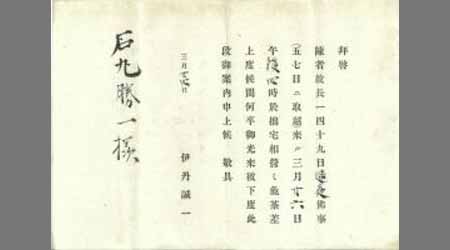 拝啓
陳者故長一四十九日逮夜佛事
（五七日ニ取越來ル三月廿六日
午後四時於拙宅相營ミ粗茶差
上度候間何卒御光來被下度此
段御案内申上候 敬具
三月 日
伊丹誠一
石丸勝一様